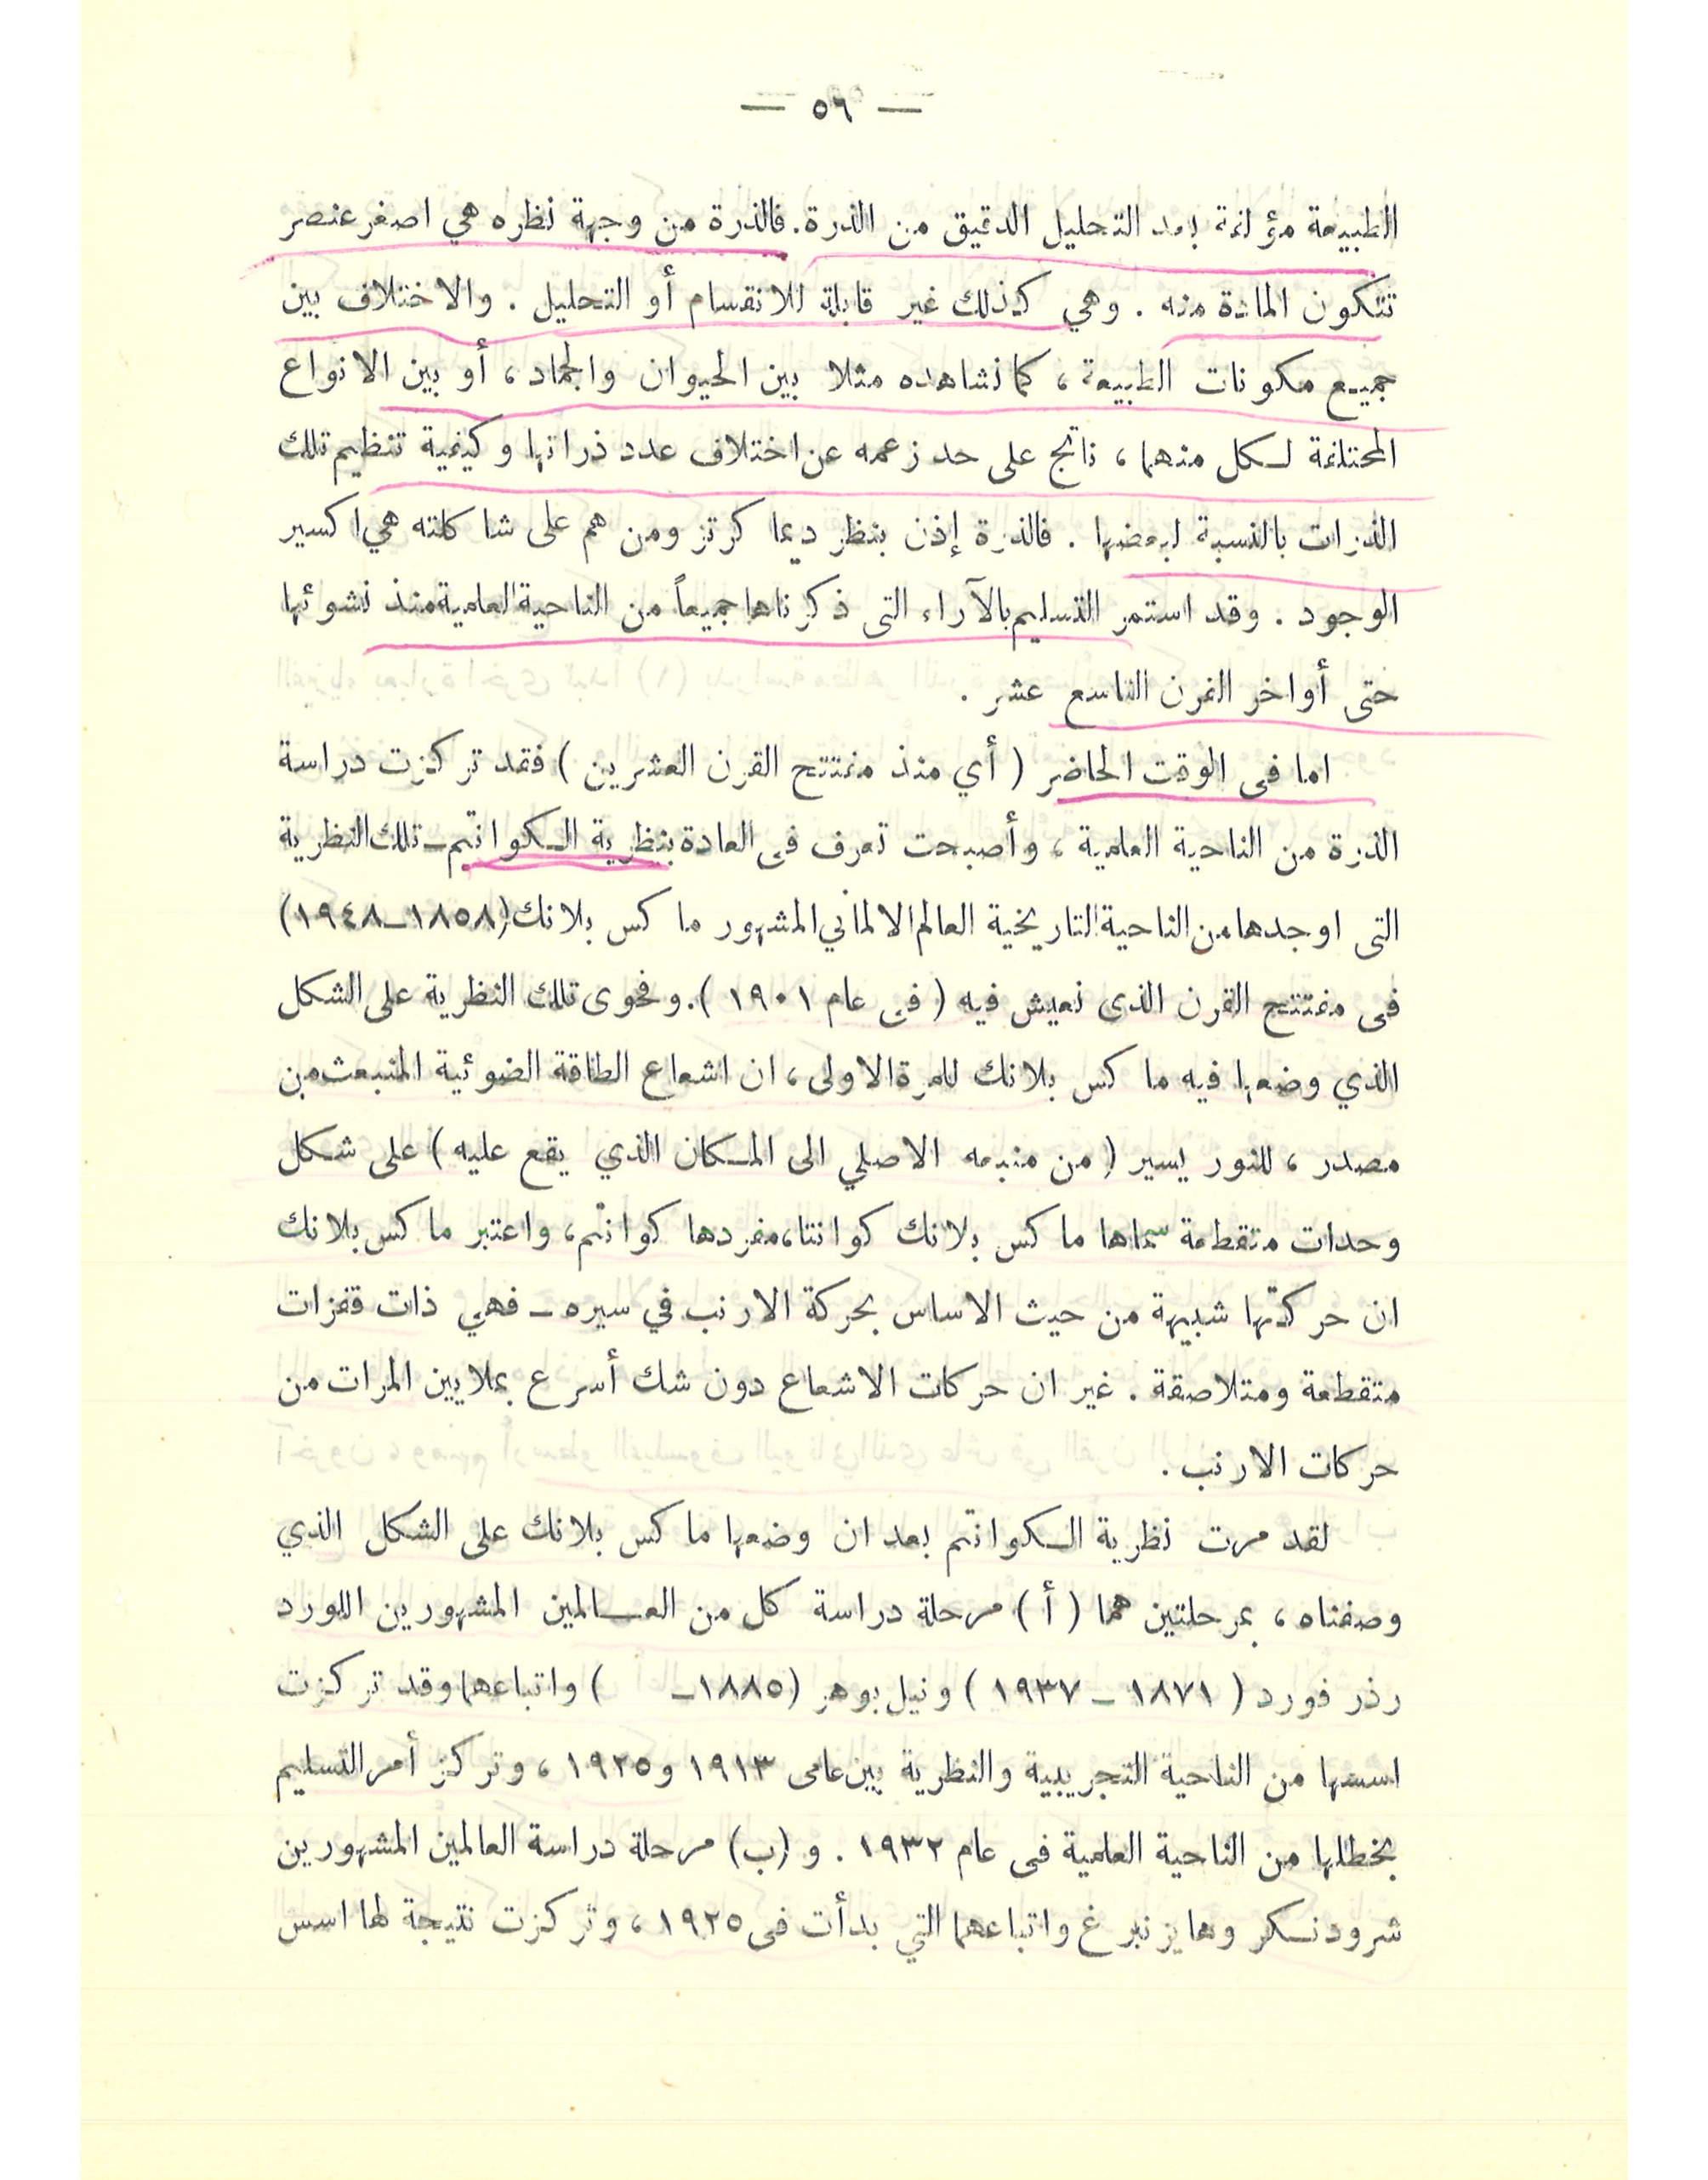 — ٥٦ —
الطبيعة مؤلفة بعد التحليل الدقيق من الذرة. فالذرة من وجهة نظره هي اصغر عنصر
تتكون المادة منه . وهي كذلك غير قابلة للانقسام أو التحليل . والاختلاف بين
جميع مكونات الطبيعة ، كما نشاهده مثلا بين الحيوان والجماد ، أو بين الانواع
المختلفة لكل منهما ، ناتج على حد زعمه عن اختلاف عدد ذراتها وكيفية تنظيم تلك
الذرات بالنسبة لبعضها . فالذرة إذن بنظر ديما كرتز ومن هم على شاكلته هي اكسير
الوجود . وقد استمر التسليم بالآراء التى ذكرناها جميعاً من الناحية العلمية منذ نشوئها
حتى أواخر القرن التاسع عشر .
اما فى الوقت الحاضر ( أي منذ مفتتح القرن العشرين ) فقد تركزت دراسة
الذرة من الناحية العلمية ، وأصبحت تعرف فى العادة بنظرية الكوانتم ــ تلك النظرية
التى اوجدها من الناحية التاريخية العالم الالماني المشهور ماكس بلانك (١٨٥٨ــ١٩٤٨)
فى مفتتح القرن الذى نعيش فيه ( فى عام ١٩٠١ ). وفحوى تلك النظرية على الشكل
الذي وضعها فيه ماكس بلانك للمرة الاولى ، ان اشعاع الطاقة الضوئية المنبعث من
مصدر ، للنور يسير ( من منبعه الاصلي الى المكان الذي يقع عليه ) على شكل
وحدات متقطعة سماها ماكس بلانك كوانتا، مفردها كوانتم، واعتبر ماكس بلانك
ان حركتها شبيهة من حيث الاساس بحركة الارنب في سيره ــ فهي ذات قفزات
متقطعة ومتلاصقة . غير ان حركات الاشعاع دون شك أسرع بملايين المرات من
حركات الارنب .
لقد مرت نظرية الكوانتم بعد ان وضعها ماكس بلانك على الشكل الذي
وصفناه ، بمرحلتين هما ( أ ) مرحلة دراسة كل من العالمين المشهورين اللورد
رذرفورد ( ١٨٧١ ــ ١٩٣٧ ) ونيل بوهر (١٨٨٥ــ ) واتباعهما وقد تركزت
اسسها من الناحية التجريبية والنظرية بين عامى ١٩١٣ و١٩٢٥ ، وتركز أمر التسليم
بخطلها من الناحية العلمية فى عام ١٩٣٢ . و (ب) مرحلة دراسة العالمين المشهورين
شرودنكر وهايزنبرغ واتباعهما التي بدأت فى ١٩٢٥ ، وتركزت نتيجة لها اسس